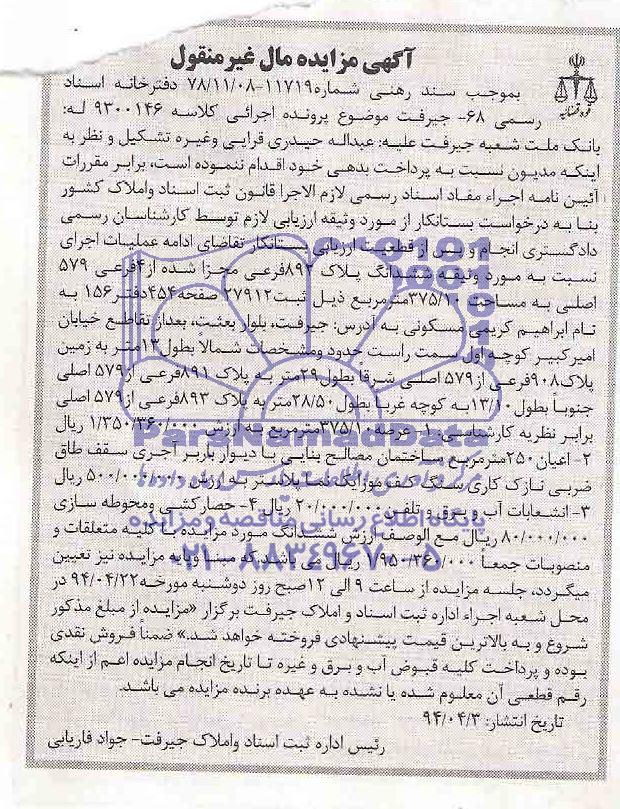 آگهی مزایده مال غیرمنقول
قوه قضائیه
بموجب سند رهنی شماره۱۱۷۱۹-۷۸/۱۱/۰۸ دفترخانه اسناد
رسمی ۶۸- جیرفت موضوع پرونده اجرائی کلاسه ۹۳۰۰۱۴۶ له:
بانک ملت شعبه جیرفت علیه: عبداله حیدری قرایی وغیره تشکیل و نظر به
اینکه مدیون نسبت به پرداخت بدهی خود اقدام ننموده است، برابر مقررات
آئین نامه اجراء مفاد اسناد رسمی لازم الاجرا قانون ثبت اسناد واملاک کشور
بنا به درخواست بستانکار از مورد وثیقه ارزیابی لازم توسط کارشناسان رسمی
دادگستری انجام و پس از قطعیت ارزیابی بستانکار تقاضای ادامه عملیات اجرای
نسبت به مورد وثیقه ششدانگ پلاک ۸۹۲فرعی مجزا شده از۴فرعی ۵۷۹
اصلی به مساحت ۳۷۵/۱۰مترمربع ذیل ثبت۲۷۹۱۲ صفحه۴۵۴دفتر۱۵۶ به
نام ابراهیم کریمی مسکونی به آدرس: جیرفت، بلوار بعثت، بعداز تقاطع خیابان
امیرکبیر کوچه اول سمت راست حدود ومشخصات شمالا بطول۱۳متر به زمین
پلاک۹۰۸فرعی از۵۷۹ اصلی شرقا بطول۲۹متر به پلاک ۸۹۱فرعی از۵۷۹ اصلی
جنوباً بطول ۱۳/۱۰به کوچه غربا بطول۲۸/۵۰متر به پلاک ۸۹۳فرعی از۵۷۹ اصلی
برابر نظریه کارشناسی ۱- عرصه۳۷۵/۱۰مترمربع به ارزش ۱/۳۵۰/۳۶۰/۰۰۰ ریال
۲- اعیان ۲۵۰مترمربع ساختمان مصالح بنایی با دیوار باربر آجری سقف طاق
ضربی نازک کاری سنگ کف موزائیک نما پلاستر به ارزش ۵۰۰/۰۰۰/۰۰۰ ریال
۳- انشعابات آب و برق و تلفن ۲۰/۰۰۰/۰۰۰ ریال ۴- حصارکشی ومحوطه سازی
۸۰/۰۰۰/۰۰۰ ریال مع الوصف ارزش ششدانگ مورد مزایده با کلیه متعلقات و
منصوبات جمعاً ۱/۹۵۰/۳۶۰/۰۰۰ ریال می باشد که مبنا وپایه مزایده نیز تعیین
میگردد، جلسه مزایده از ساعت ۹ الی ۱۲صبح روز دوشنبه مورخه۹۴/۰۴/۲۲ در
محل شعبه اجراء اداره ثبت اسناد و املاک جیرفت برگزار «مزایده از مبلغ مذکور
شروع و به بالاترین قیمت پیشنهادی فروخته خواهد شد.» ضمناً فروش نقدی
بوده و پرداخت کلیه قبوض آب و برق و غیره تا تاریخ انجام مزایده اعم از اینکه
رقم قطعی آن معلوم شده یا نشده به عهده برنده مزایده می باشد.
تاریخ انتشار: ۹۴/۰۴/۳
رئیس اداره ثبت اسناد واملاک جیرفت- جواد فاریابی
ParsNamadData
پایگاه اطلاع رسانی مناقصه ومزایده
۰۲۱-۸۸۳۴۹۶۷۰-۵